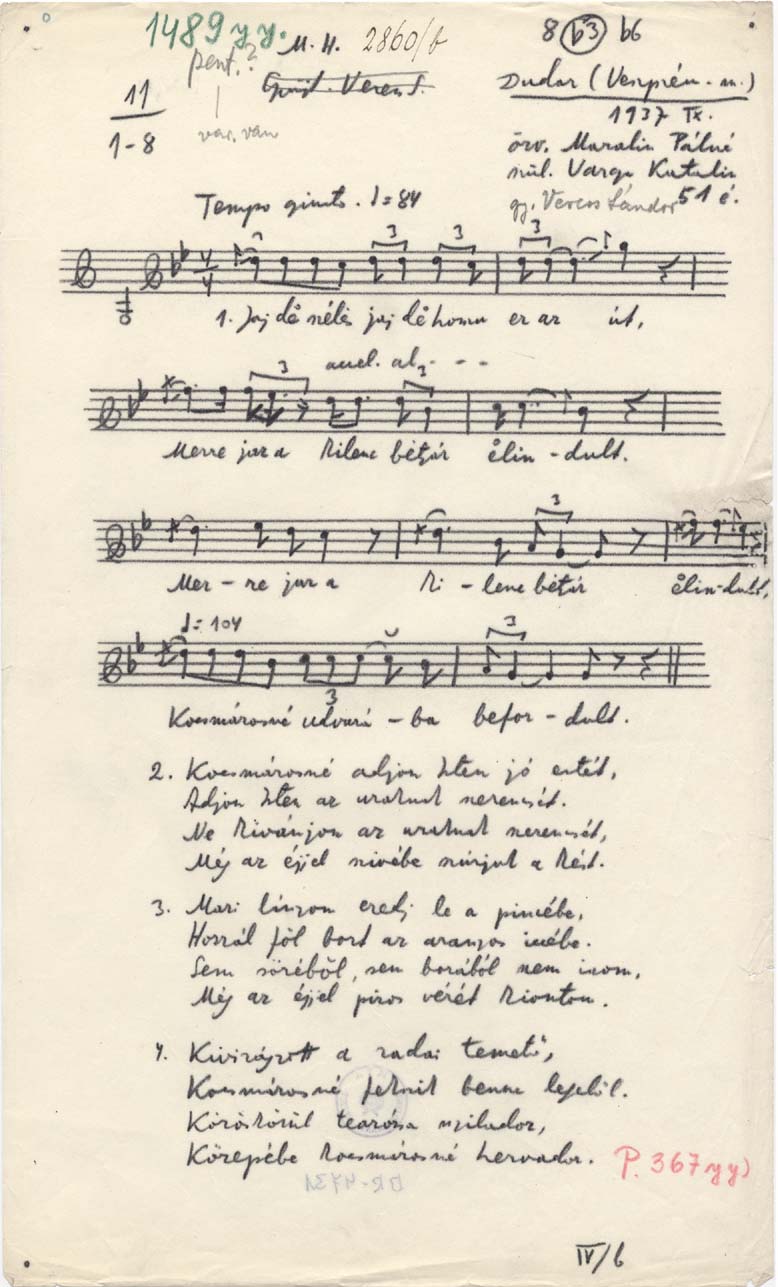 1489 yy.
M. H. 2860/b
8 b3 b6
pent.?
Gyűjt. Veress S.
Dudar (Veszprém - m.)
11
1-8
var. van
1937 IX.
özv. Maralin Pálné
szül. Varga Katalin
gy. Veress Sándor 51 é.
Tempo giusto. ♩= 84
3 3 3
1. Jaj dë szélës jaj dë hosszu ez az út,
accel. al - - -
3 3
Merre jár a kilenc bėtjár ėlin - dult.
3
Mer - re jár a ki - lenc bėtjár ėlin-dult,
♩= 104
3 3
Kocsmárosné udvará - ba befor - dult.
2. Kocsmárosné adjon Isten jó estét,
Adjon Isten az uraknak szerencsét.
Ne kivánjon az uraknak szerencsét,
Még az éjjel szivébe szúrjuk a kést.
3. Mari lányom eredj le a pincébe,
Hozzál föl bort az aranyos iccébe.
Sem söréből, sem borából nem iszom,
Még az éjjel piros vérét kiontom.
4. Kivirágzott a zadai temető,
Kocsmárosné fekszik benne legelöl.
Köröskörül tearózsa nyiladoz,
Közepébe kocsmárosné hervadoz.
P. 367 yy)
IV/6